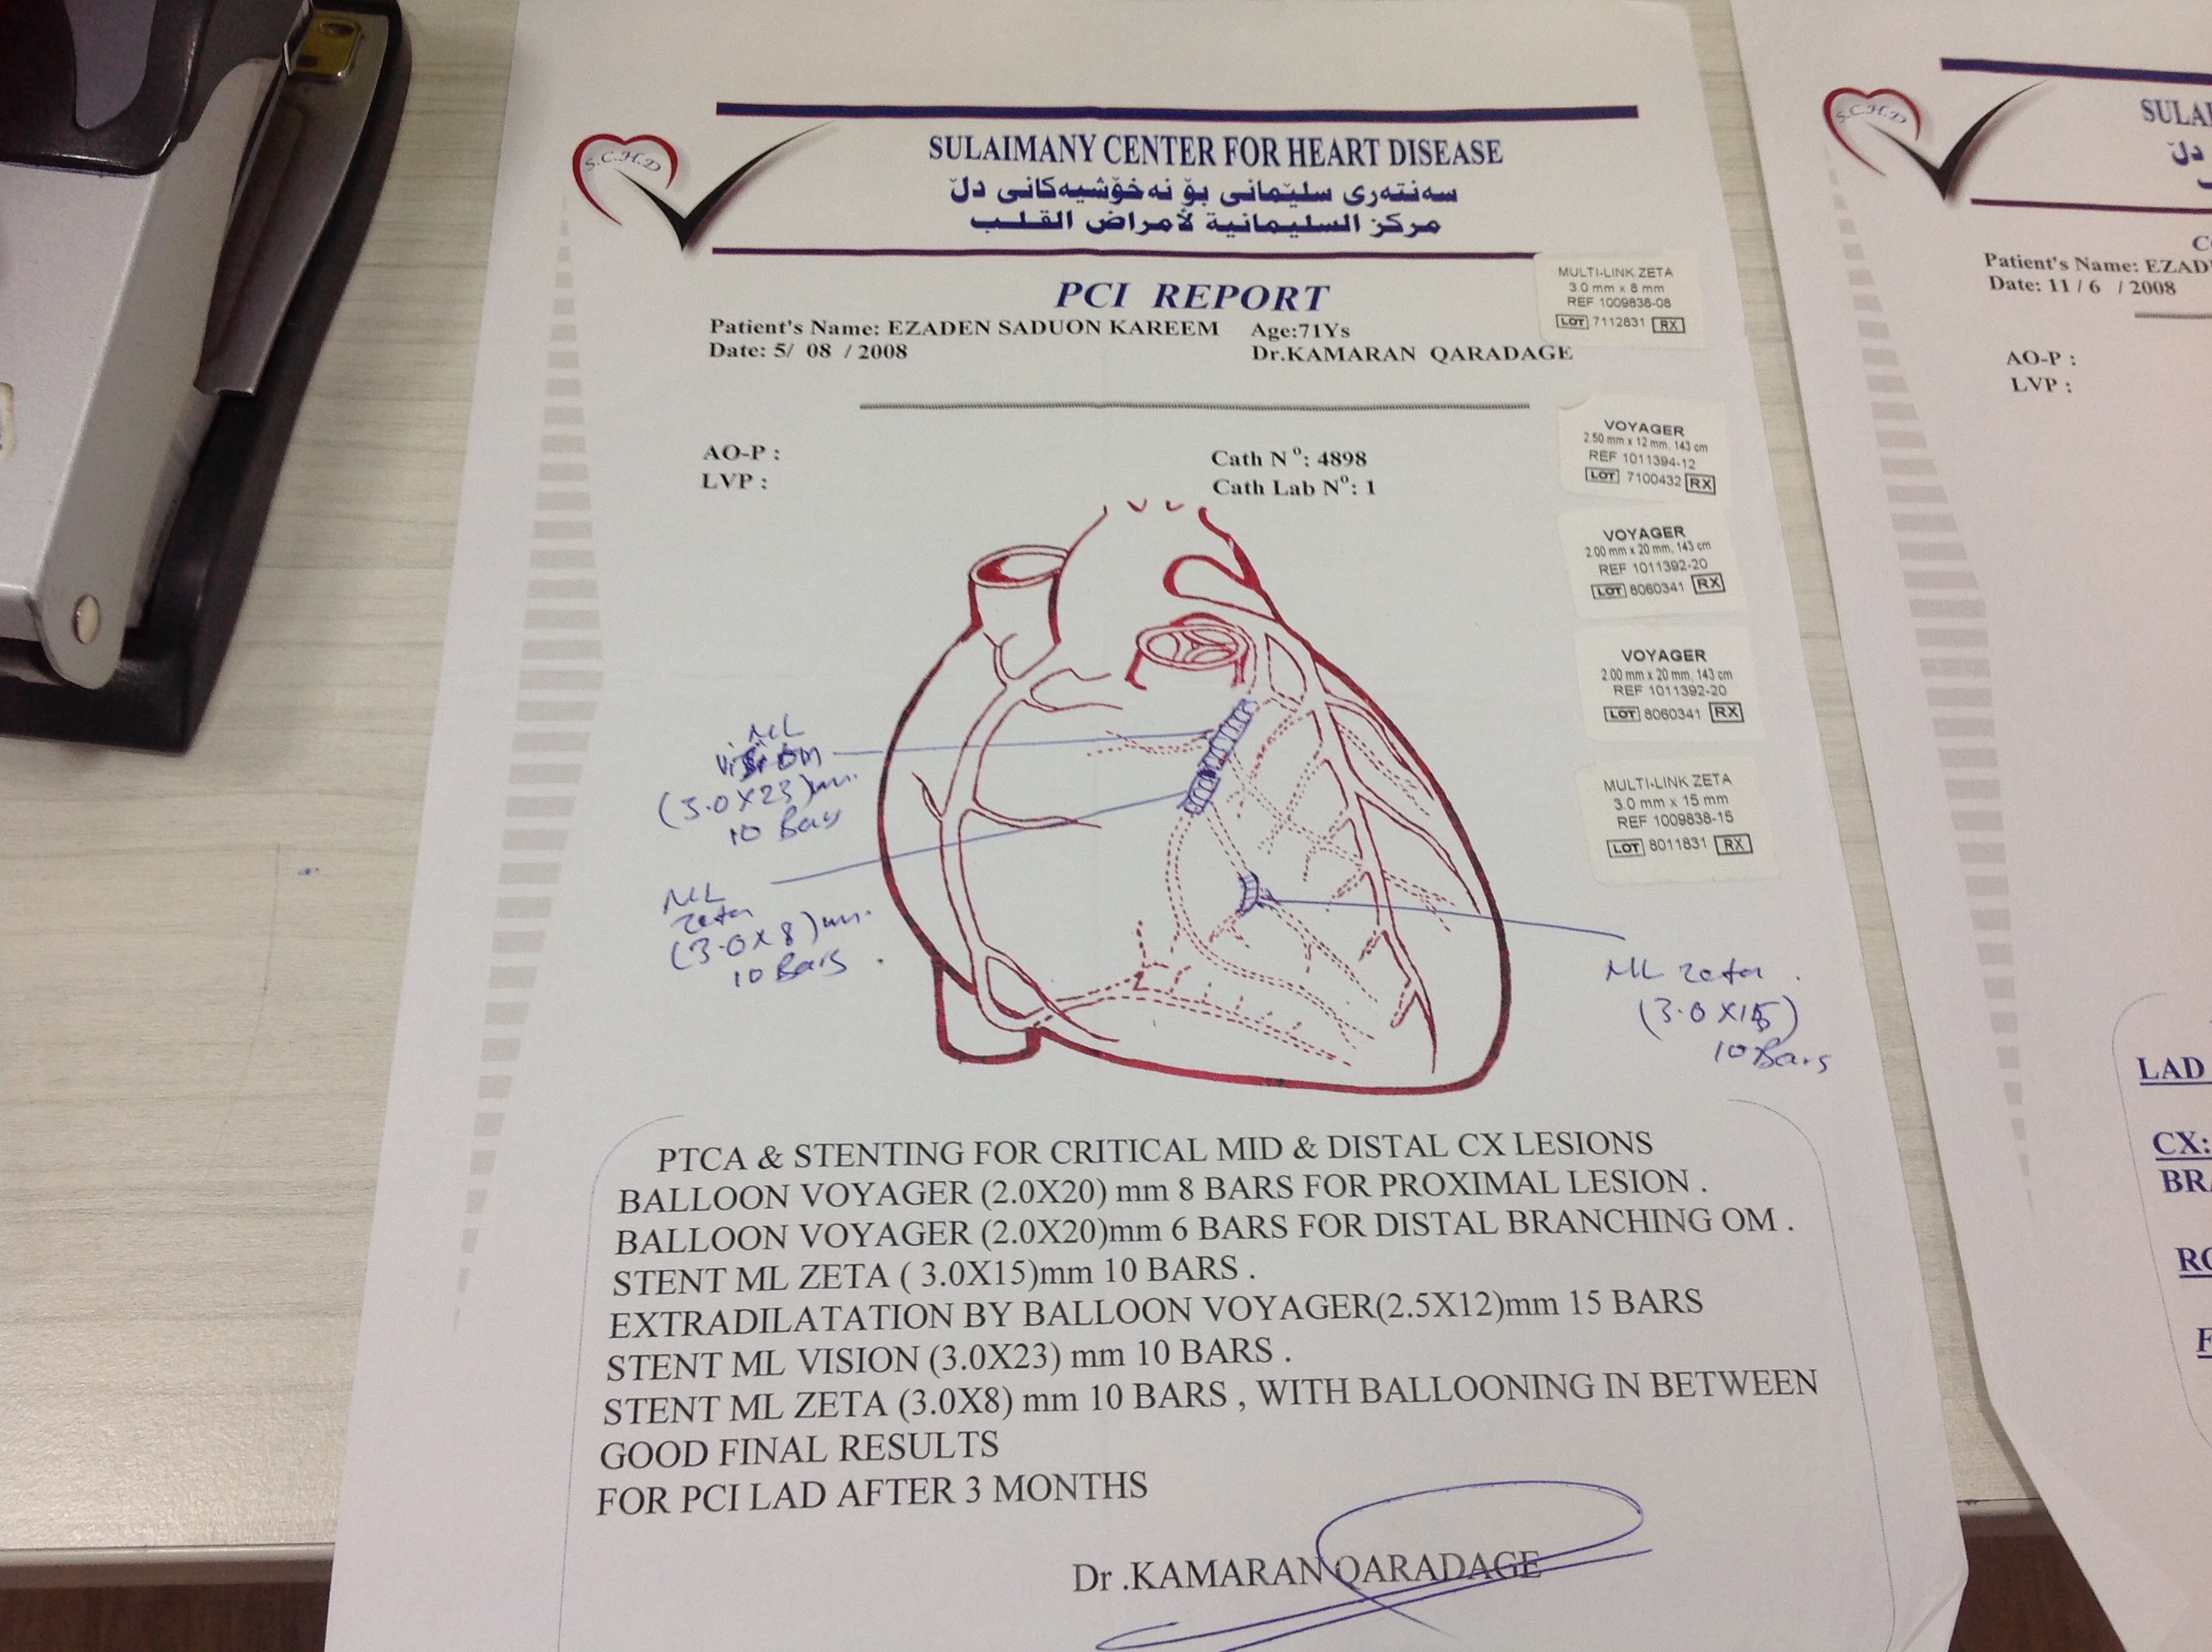 S.C.H.D
SULAIMANY CENTER FOR HEART DISEASE
سەنتەری سلێمانی بۆ نەخۆشیەکانی دڵ
مركز السليمانية لأمراض القلب
PCI REPORT
Patient's Name: EZADEN SADUON KAREEM Age:71Ys
Date: 5/ 08 / 2008 Dr.KAMARAN QARADAGE
MULTI-LINK ZETA
3.0 mm x 8 mm
REF 1009838-08
LOT 7112831 RX
AO-P :
LVP :
Cath Nº: 4898
Cath Lab Nº: 1
VOYAGER
2.50 mm x 12 mm, 143 cm
REF 1011394-12
LOT 7100432 RX
VOYAGER
2.00 mm x 20 mm, 143 cm
REF 1011392-20
LOT 8060341 RX
VOYAGER
2.00 mm x 20 mm, 143 cm
REF 1011392-20
LOT 8060341 RX
MULTI-LINK ZETA
3.0 mm x 15 mm
REF 1009838-15
LOT 8011831 RX
ML
vision
(3.0X23)mm.
10 Bars
ML
zeta
(3.0X8)mm.
10 Bars.
ML zeta.
(3.0X15)
10 Bars
PTCA & STENTING FOR CRITICAL MID & DISTAL CX LESIONS
BALLOON VOYAGER (2.0X20) mm 8 BARS FOR PROXIMAL LESION .
BALLOON VOYAGER (2.0X20)mm 6 BARS FOR DISTAL BRANCHING OM .
STENT ML ZETA ( 3.0X15)mm 10 BARS .
EXTRADILATATION BY BALLOON VOYAGER(2.5X12)mm 15 BARS
STENT ML VISION (3.0X23) mm 10 BARS .
STENT ML ZETA (3.0X8) mm 10 BARS , WITH BALLOONING IN BETWEEN
GOOD FINAL RESULTS
FOR PCI LAD AFTER 3 MONTHS
Dr .KAMARAN QARADAGE
S.C.H.D
SULAI
دڵ
Patient's Name: EZAD
Date: 11 / 6 / 2008
AO-P :
LVP :
LAD
CX:
BR